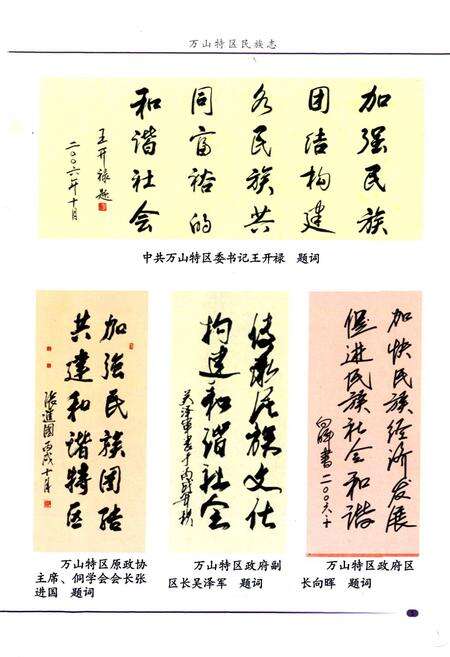 万山特区民族志
加强民族
团结构建
各民族共
同富裕的
和谐社会
王开禄题
二〇〇六年十月
中共万山特区委书记王开禄 题词
加强民族团结
共建和谐特区
张进国 丙戌十月
传承民族文化
构建和谐社会
吴泽军书于丙戌年秋
加快民族经济发展
促进民族社会和谐
向晖书二〇〇六、十
万山特区原政协
主席、侗学会会长张
进国 题词
万山特区政府副
区长吴泽军 题词
万山特区政府区
长向晖 题词